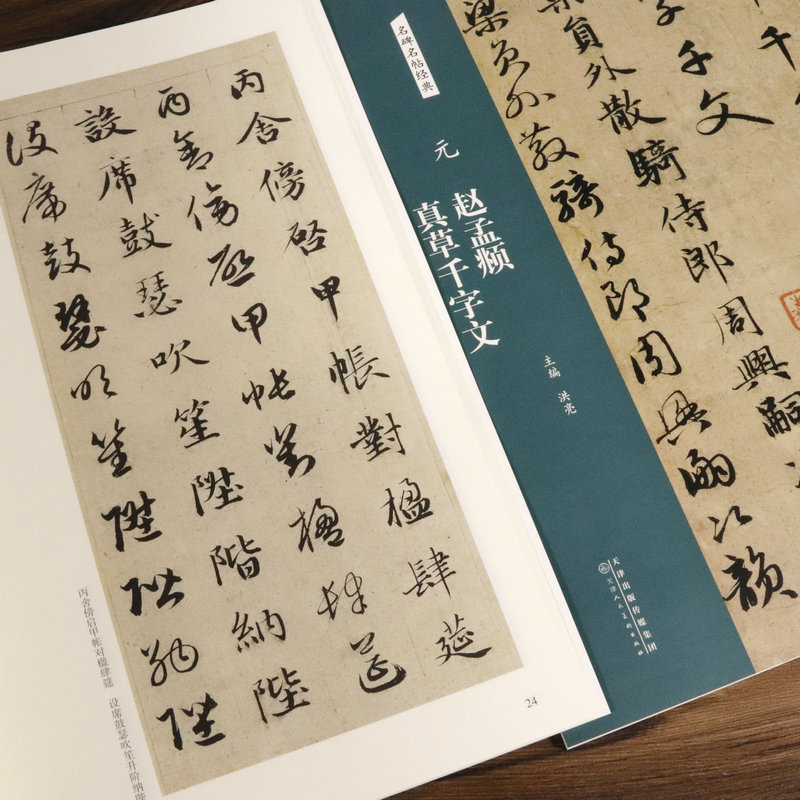 丙舍傍啓甲帳對楹肆莚
丙舍傍啓甲帳對楹肆莚
設席鼓瑟吹笙陞階納陛
設席鼓瑟吹笙陞階納陛
丙舍傍启甲帐对楹肆筵 设席鼓瑟吹笙升阶纳陛
24
名碑名帖经典
元
赵孟頫
真草千字文
主编 洪亮
天津出版传媒集团
天津人民美术出版社
字千文
梁員外散騎侍郎周興嗣次
梁员外散騎侍郎周興嗣次韻